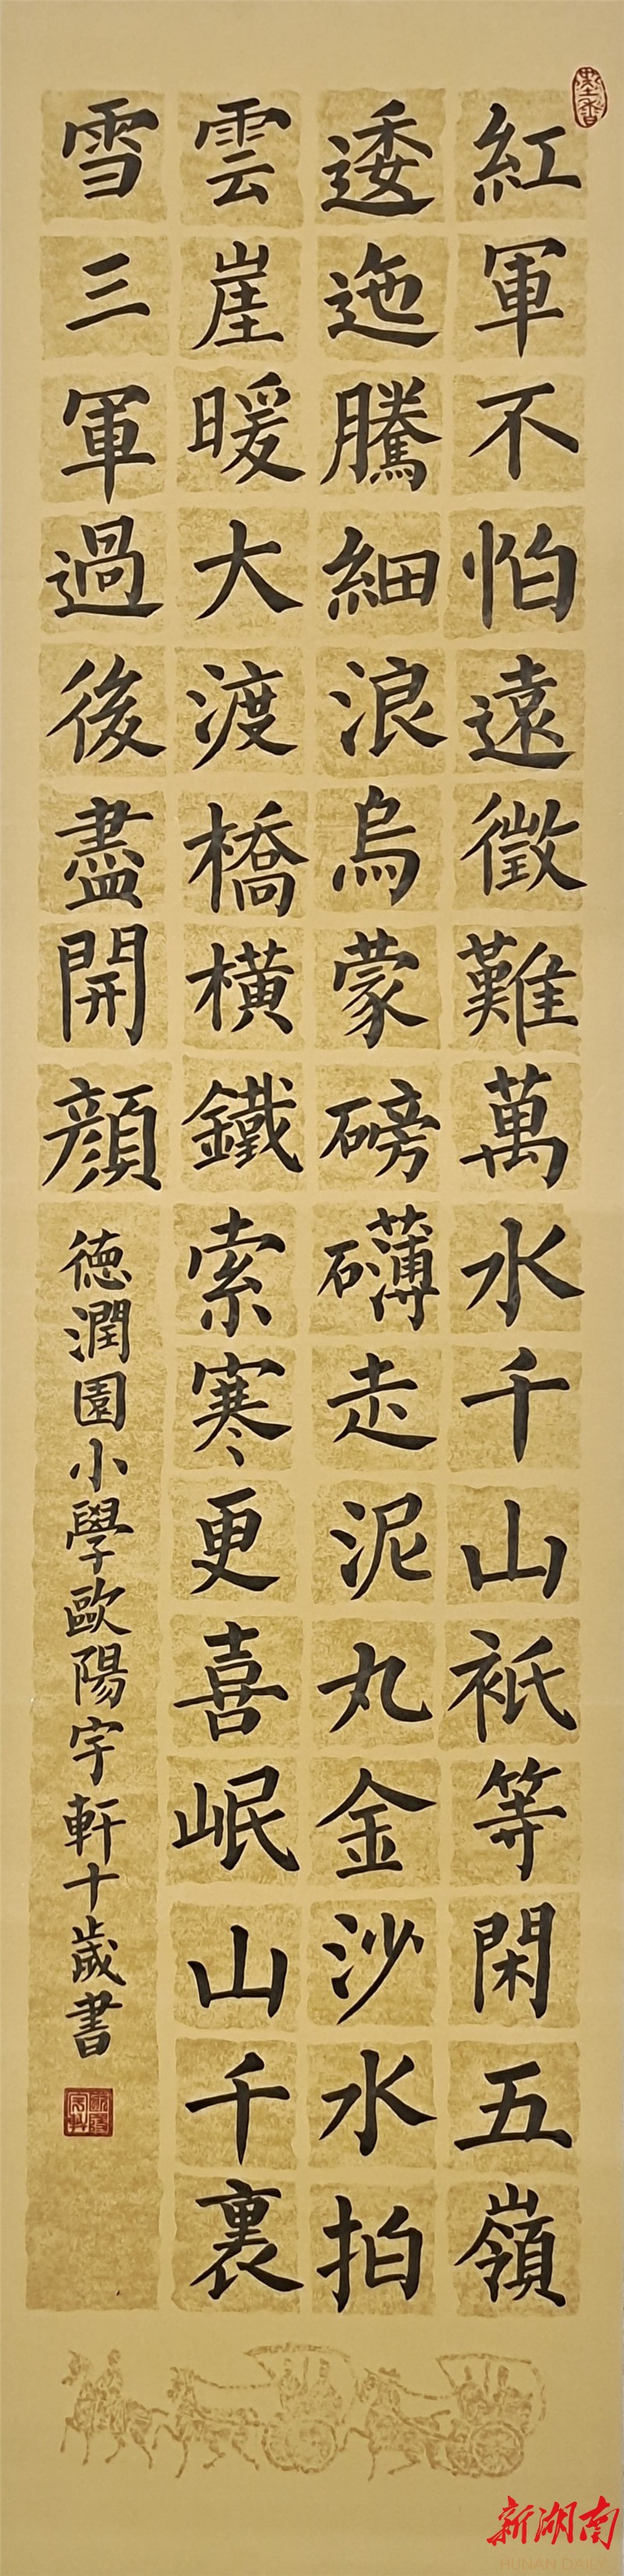 墨香
紅軍不怕遠徵難萬水千山衹等閑五嶺
逶迤騰細浪烏蒙磅礴走泥丸金沙水拍
雲崖暖大渡橋橫鐵索寒更喜岷山千裏
雪三軍過後盡開顔
德潤園小學歐陽宇軒十歲書
新湖南
HUNAN DAILY